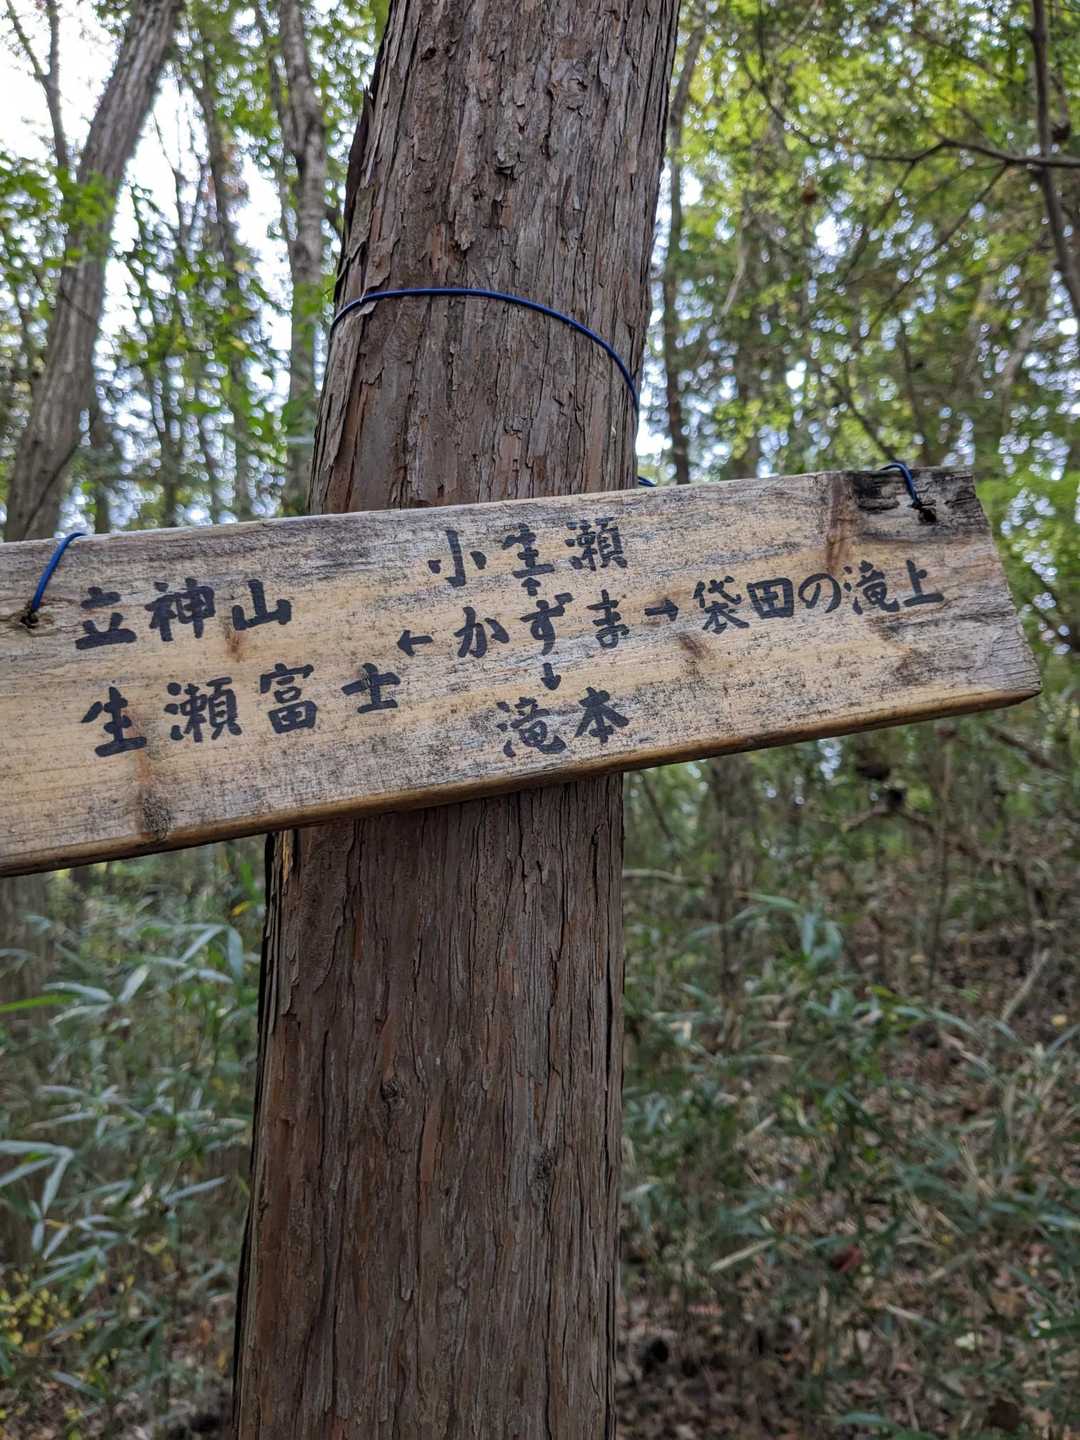 小生瀬
↑
立神山
生瀬富士
←かずま→袋田の滝上
↓
滝本